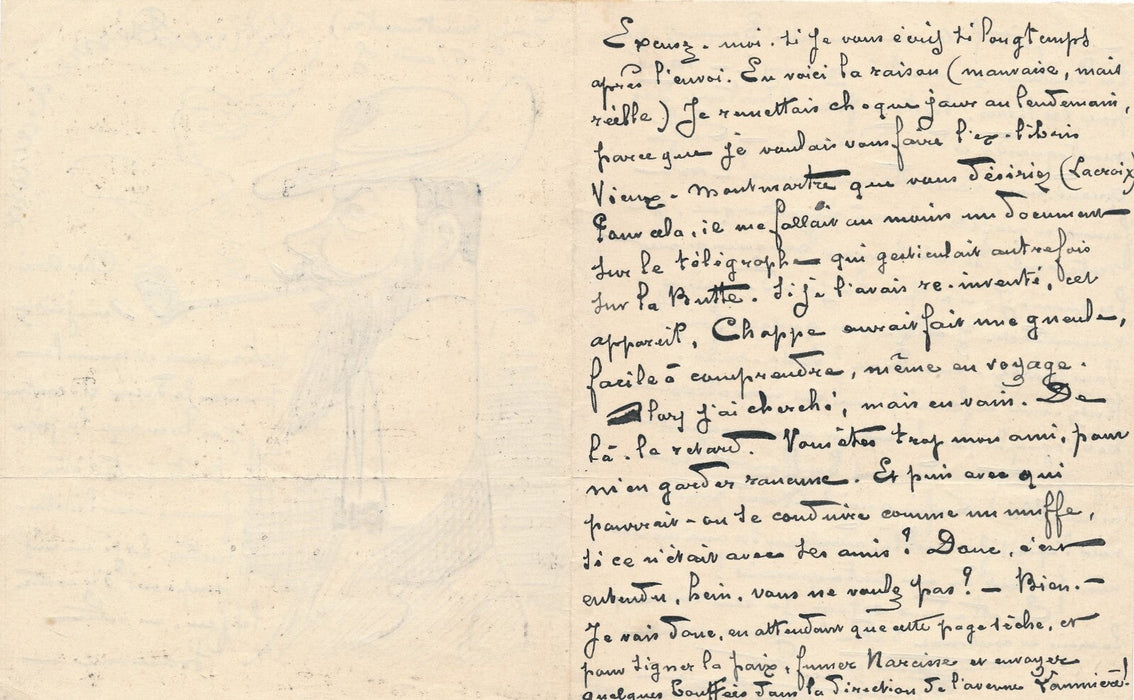 Excusez-moi. si je vous écris si longtemps
après l'envoi. En voici la raison (mauvaise, mais
réelle) Je remettais chaque jour au lendemain,
parce que je voulais vous faire l'ex-libris
Vieux-Montmartre que vous désiriez (Lacroix)
Pour cela, il me fallait au moins un document
sur le télégraphe qui gesticulait autrefois
sur la Butte. Si je l'avais re-inventé, cet
appareil, Chappe aurait fait une gueule,
facile à comprendre, même en voyage.
Alors j'ai cherché, mais en vain. De
là. le retard. Vous êtes trop mon ami, pour
m'en garder rancune. Et puis avec qui
pourrait-on se conduire comme un muffe,
si ce n'était avec ses amis? Donc, c'est
entendu, hein, vous ne voulez pas? — Bien. —
Je vais donc, en attendant que cette page sèche, et
pour signer la paix, fumer Narcisse et envoyer
quelques bouffées dans la direction de l'avenue